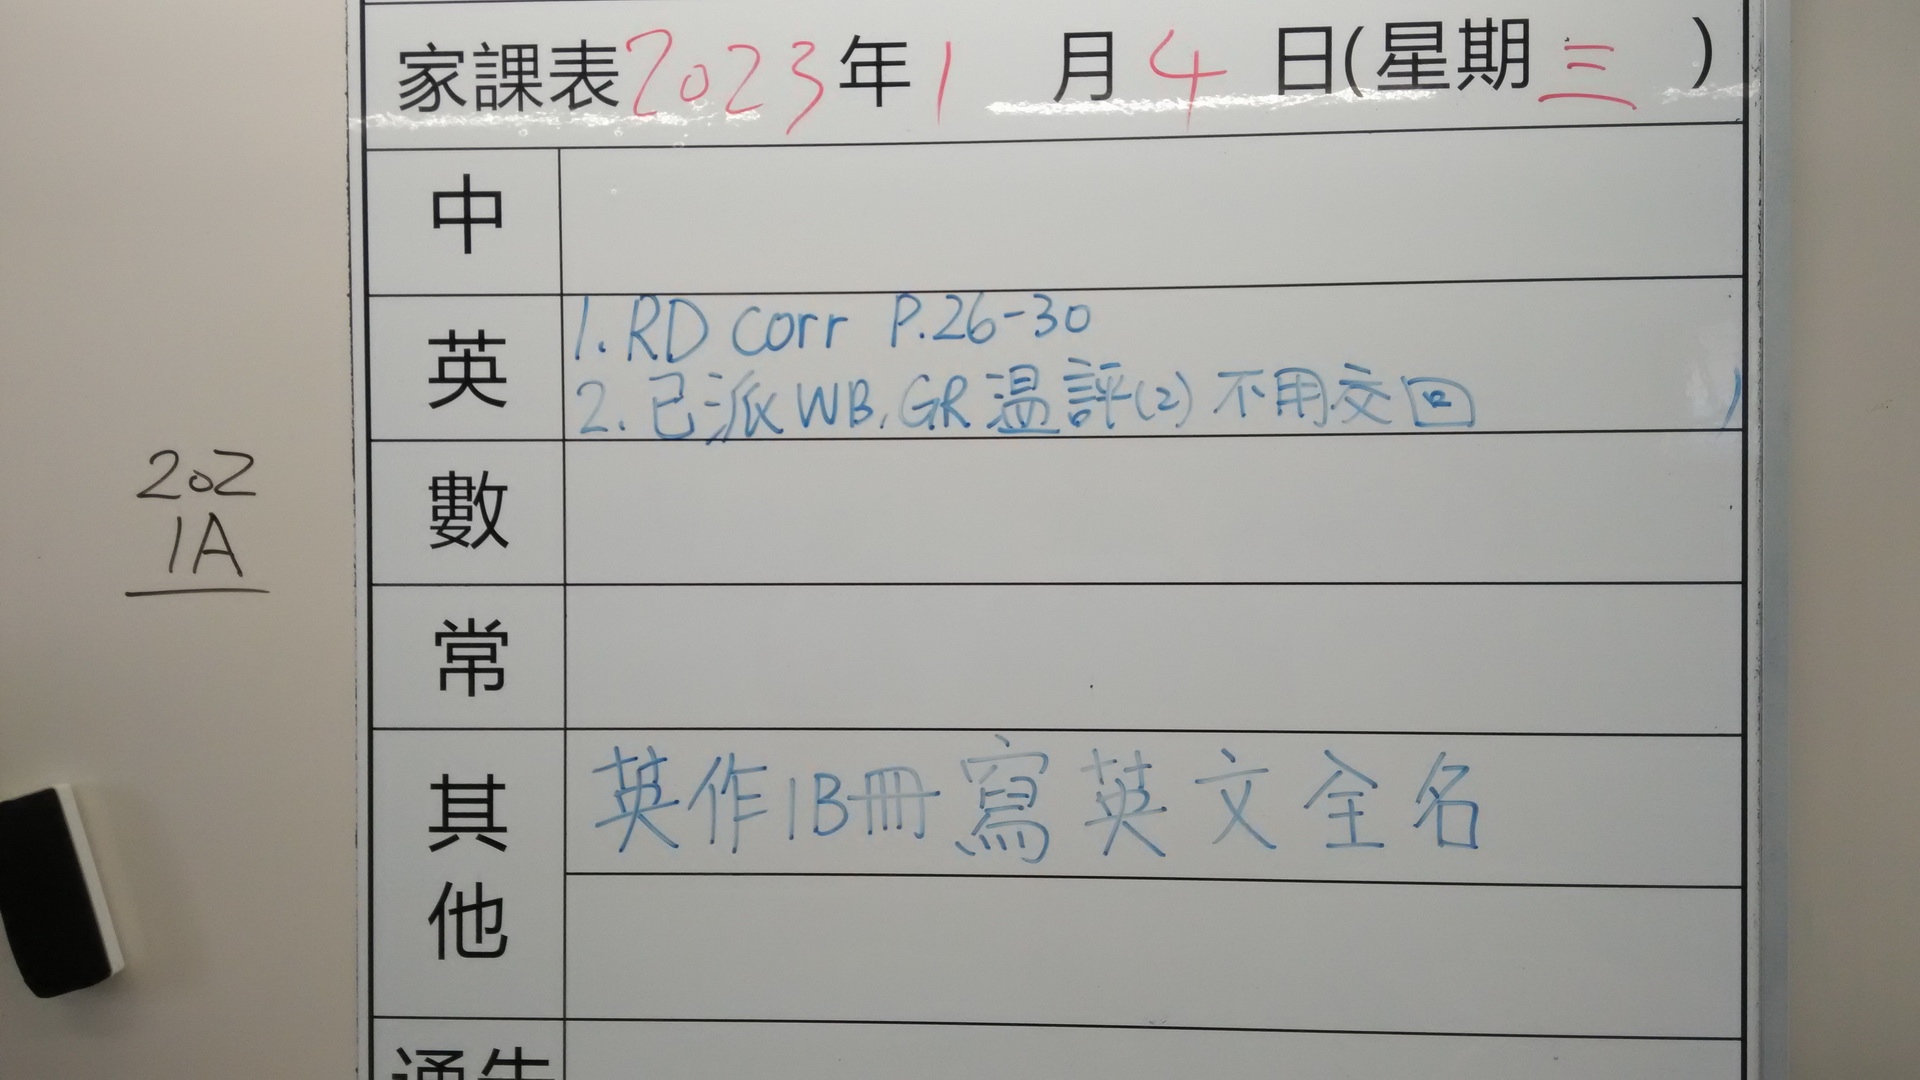 家課表2023年1月4日(星期三)
中
英
1. RD corr P.26-30
2. 已派WB, GR 溫評(2) 不用交回
數
常
202
1A
其他
英作1B冊寫英文全名
通告